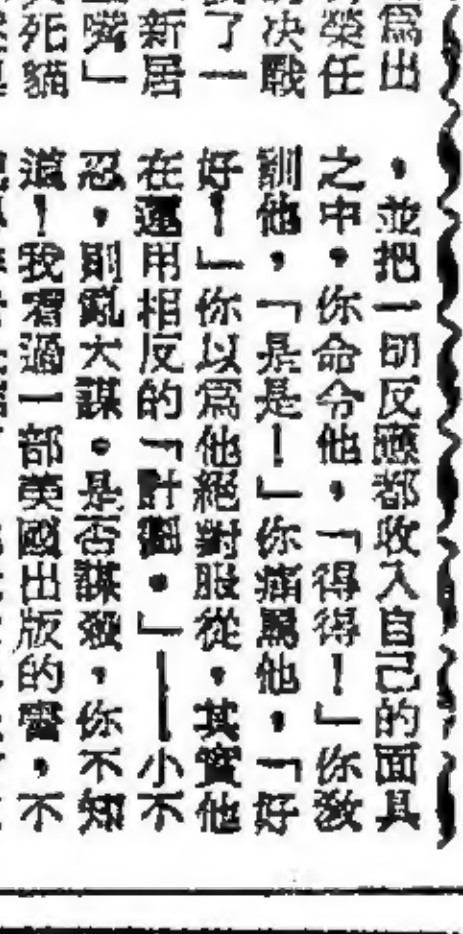 爲出
榮任
決戰
了一
新居
嘴」
死貓
，並把一切反應都收入自己的面具
之中，你命令他，「得得！」你教
訓他，「是是！」你痛罵他，「好
好！」你以爲他絕對服從，其實他
在運用相反的「計劃。」——小不
忍，則亂大謀。是否謀殺，你不知
道！我看過一部美國出版的書，不